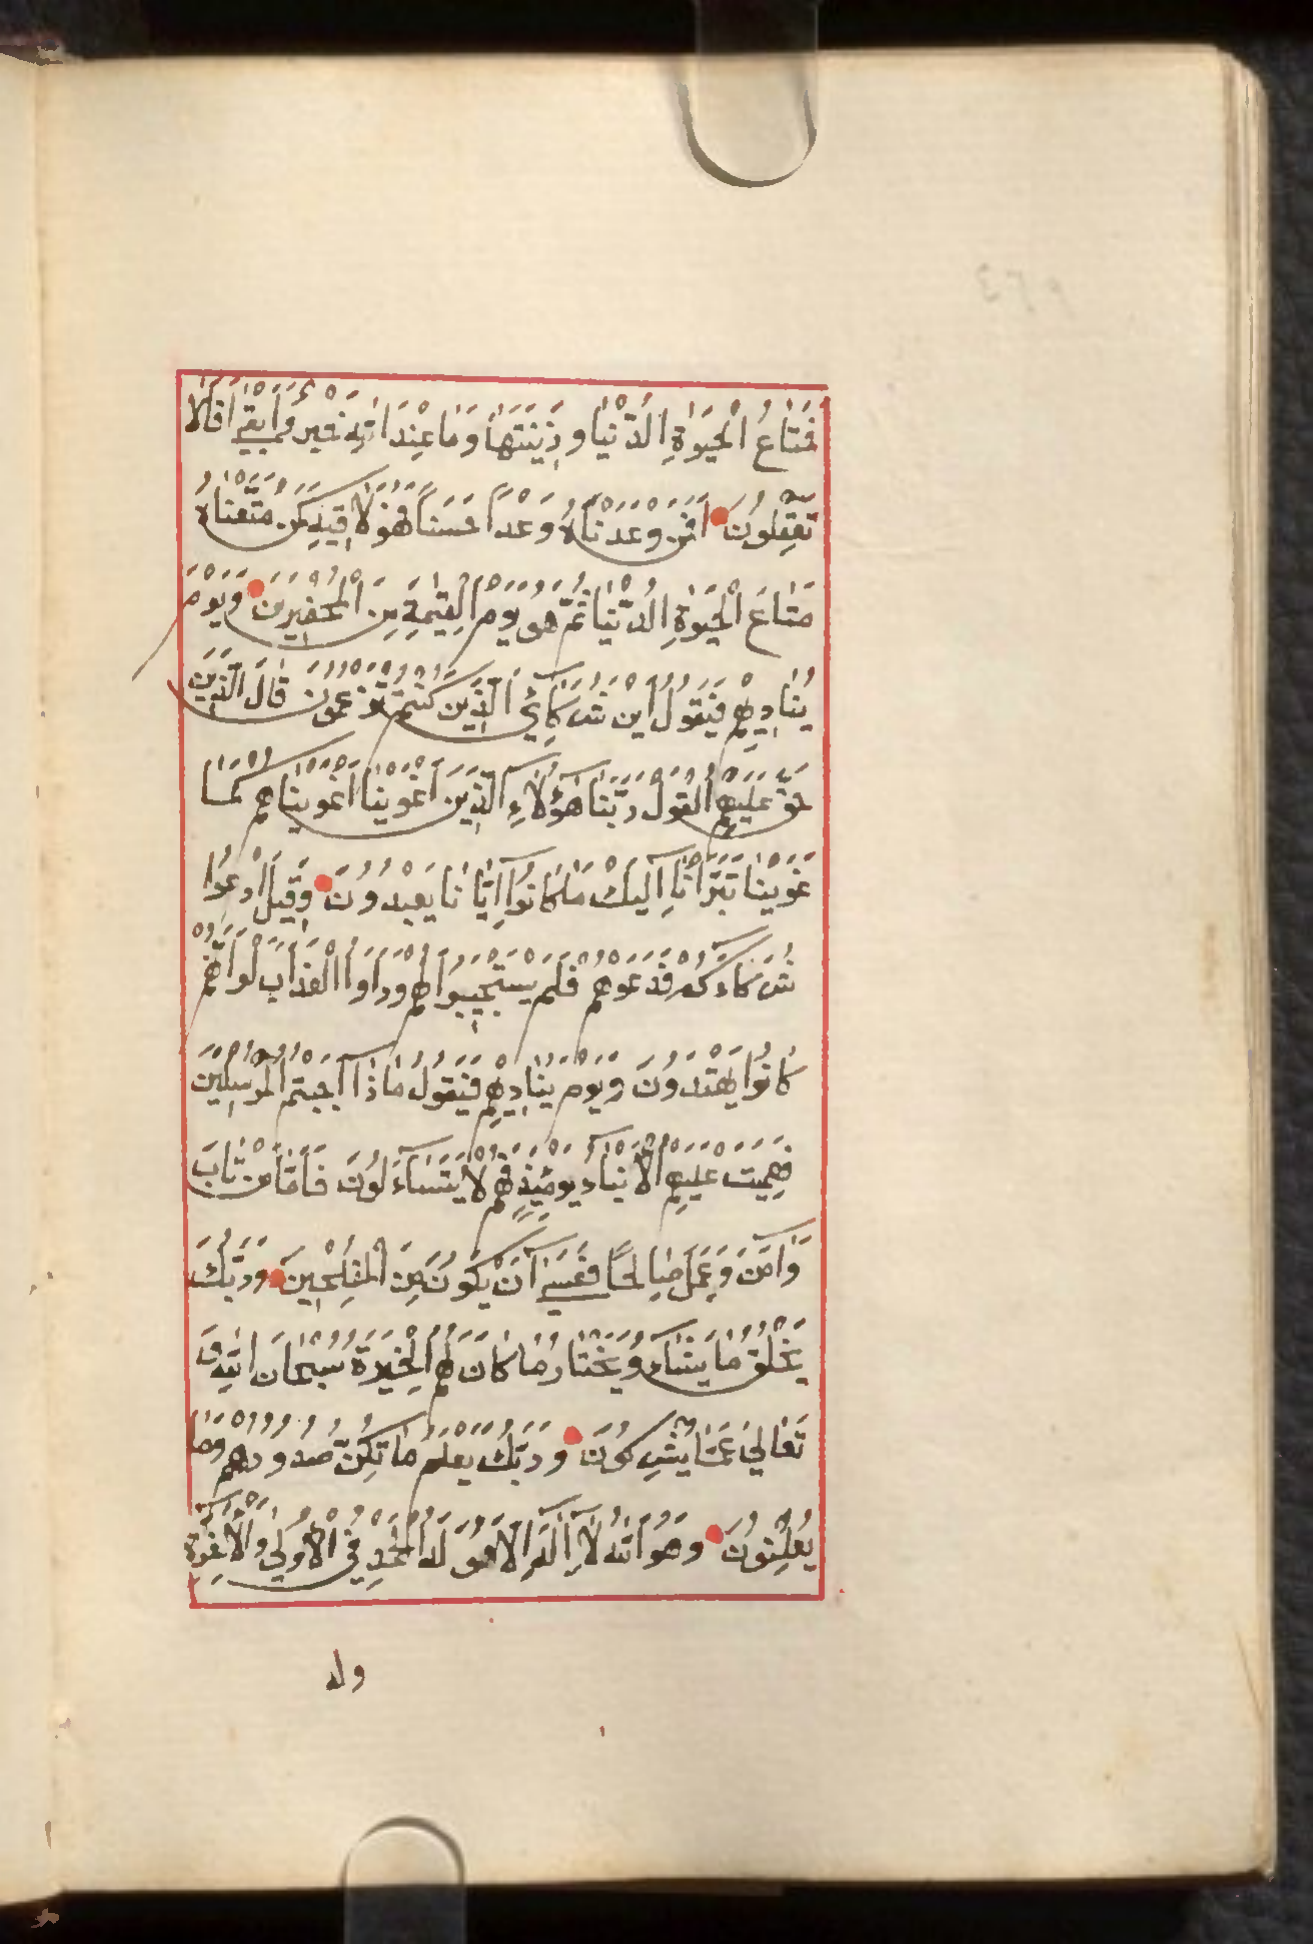 فَمَتَاعُ الْحَيٰوةِ الدُّنْيَا وَزِينَتُهَا وَمَا عِنْدَ اللهِ خَيْرٌ وَأَبْقٰى أَفَلَا
تَعْقِلُونَ أَفَمَنْ وَعَدْنَاهُ وَعْدًا حَسَنًا فَهُوَ لَاقِيهِ كَمَنْ مَتَّعْنَاهُ
مَتَاعَ الْحَيٰوةِ الدُّنْيَا ثُمَّ هُوَ يَوْمَ الْقِيٰمَةِ مِنَ الْمُحْضَرِينَ وَيَوْمَ
يُنَادِيهِمْ فَيَقُولُ أَيْنَ شُرَكَائِيَ الَّذِينَ كُنْتُمْ تَزْعُمُونَ قَالَ الَّذِينَ
حَقَّ عَلَيْهِمُ الْقَوْلُ رَبَّنَا هٰؤُلَاءِ الَّذِينَ أَغْوَيْنَا أَغْوَيْنَاهُمْ كَمَا
غَوَيْنَا تَبَرَّأْنَا إِلَيْكَ مَا كَانُوا إِيَّانَا يَعْبُدُونَ وَقِيلَ ادْعُوا
شُرَكَاءَكُمْ فَدَعَوْهُمْ فَلَمْ يَسْتَجِيبُوا لَهُمْ وَرَأَوُا الْعَذَابَ لَوْ أَنَّهُمْ
كَانُوا يَهْتَدُونَ وَيَوْمَ يُنَادِيهِمْ فَيَقُولُ مَاذَا أَجَبْتُمُ الْمُرْسَلِينَ
فَعَمِيَتْ عَلَيْهِمُ الْأَنْبَاءُ يَوْمَئِذٍ فَهُمْ لَا يَتَسَاءَلُونَ فَأَمَّا مَنْ تَابَ
وَآمَنَ وَعَمِلَ صَالِحًا فَعَسٰى أَنْ يَكُونَ مِنَ الْمُفْلِحِينَ وَرَبُّكَ
يَخْلُقُ مَا يَشَاءُ وَيَخْتَارُ مَا كَانَ لَهُمُ الْخِيَرَةُ سُبْحَانَ اللهِ وَ
تَعَالٰى عَمَّا يُشْرِكُونَ وَرَبُّكَ يَعْلَمُ مَا تُكِنُّ صُدُورُهُمْ وَمَا
يُعْلِنُونَ وَهُوَ اللهُ لَا إِلٰهَ إِلَّا هُوَ لَهُ الْحَمْدُ فِي الْأُولٰى وَالْآخِرَةِ
وله